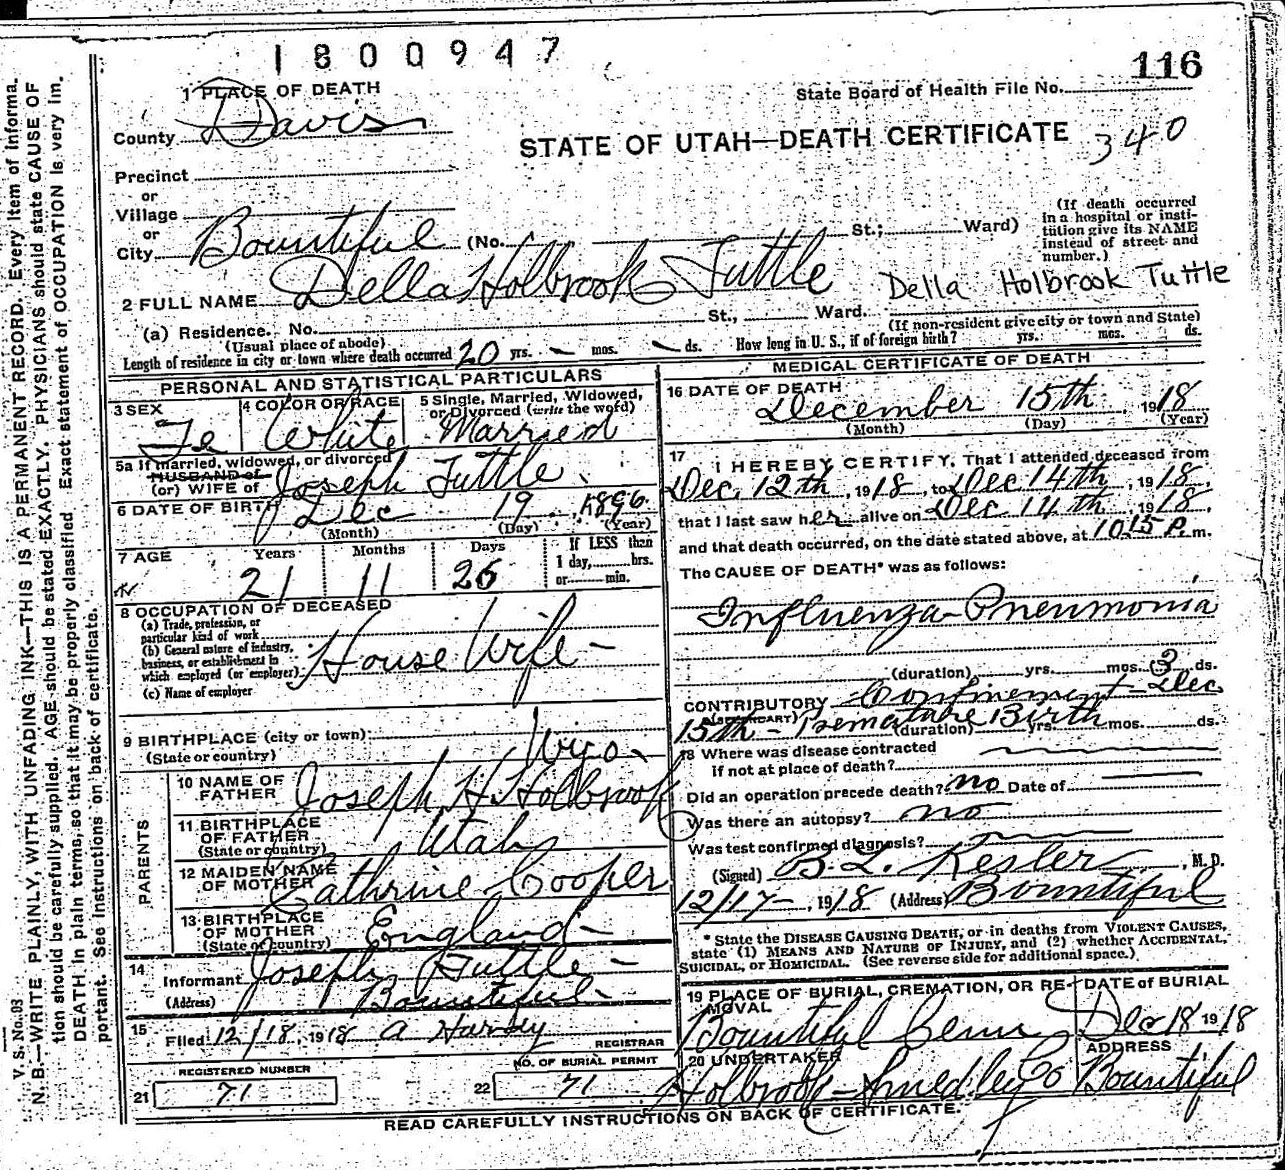 1800947
116
1 PLACE OF DEATH
State Board of Health File No.
County Davis
STATE OF UTAH—DEATH CERTIFICATE 340
Precinct
or
Village
or
City Bountiful (No. St.; Ward)
(If death occurred in a hospital or institution give its NAME instead of street and number.)
2 FULL NAME Della Holbrook Tuttle Della Holbrook Tuttle
(a) Residence. No. St., Ward.
(Usual place of abode) (If non-resident give city or town and State)
Length of residence in city or town where death occurred 20 yrs. — mos. — ds. How long in U. S., if of foreign birth? yrs. mos. ds.
PERSONAL AND STATISTICAL PARTICULARS
3 SEX 4 COLOR OR RACE 5 Single, Married, Widowed, or Divorced (write the word)
Fe White Married
5a If married, widowed, or divorced
HUSBAND of
(or) WIFE of Joseph Tuttle
6 DATE OF BIRTH Dec 19 1896
(Month) (Day) (Year)
7 AGE Years Months Days If LESS than
1 day, hrs.
21 11 26 or min.
8 OCCUPATION OF DECEASED
(a) Trade, profession, or
particular kind of work
(b) General nature of industry,
business, or establishment in
which employed (or employer) House Wife
(c) Name of employer
9 BIRTHPLACE (city or town)
(State or country) Wyo
PARENTS
10 NAME OF FATHER Joseph H Holbrook
11 BIRTHPLACE OF FATHER
(State or country) Utah
12 MAIDEN NAME OF MOTHER Cathrine Cooper
13 BIRTHPLACE OF MOTHER
(State or country) England
14 Informant Joseph Tuttle
(Address) Bountiful
15 Filed 12/18, 1918 REGISTRAR
REGISTERED NUMBER
21 71
NO. OF BURIAL PERMIT
22 71
MEDICAL CERTIFICATE OF DEATH
16 DATE OF DEATH
December 15th, 1918
(Month) (Day) (Year)
17 I HEREBY CERTIFY, That I attended deceased from
Dec. 12th, 1918, to Dec 14th, 1918,
that I last saw her alive on Dec 14th, 1918,
and that death occurred, on the date stated above, at 10 15 P. m.
The CAUSE OF DEATH* was as follows:
Influenza-Pneumonia
(duration) yrs. mos. 3 ds.
CONTRIBUTORY Confinement Dec
(SECONDARY)
15th - Premature Birth
(duration) yrs. mos. ds.
18 Where was disease contracted
if not at place of death?
Did an operation precede death? no Date of
Was there an autopsy? no
Was test confirmed diagnosis?
(Signed) B. L. Kesler, M. D.
12/17, 1918 (Address) Bountiful
* State the DISEASE CAUSING DEATH, or in deaths from VIOLENT CAUSES,
state (1) MEANS AND NATURE OF INJURY, and (2) whether ACCIDENTAL,
SUICIDAL, or HOMICIDAL. (See reverse side for additional space.)
19 PLACE OF BURIAL, CREMATION, OR REMOVAL DATE of BURIAL
Bountiful Cem Dec 18 1918
20 UNDERTAKER ADDRESS
Holbrook-Smedley Co Bountiful
READ CAREFULLY INSTRUCTIONS ON BACK OF CERTIFICATE.
V. S. No. 93
N. B.—WRITE PLAINLY, WITH UNFADING INK—THIS IS A PERMANENT RECORD. Every item of informa-
tion should be carefully supplied. AGE should be stated EXACTLY. PHYSICIANS should state CAUSE OF
DEATH in plain terms, so that it may be properly classified. Exact statement of OCCUPATION is very im-
portant. See instructions on back of certificate.